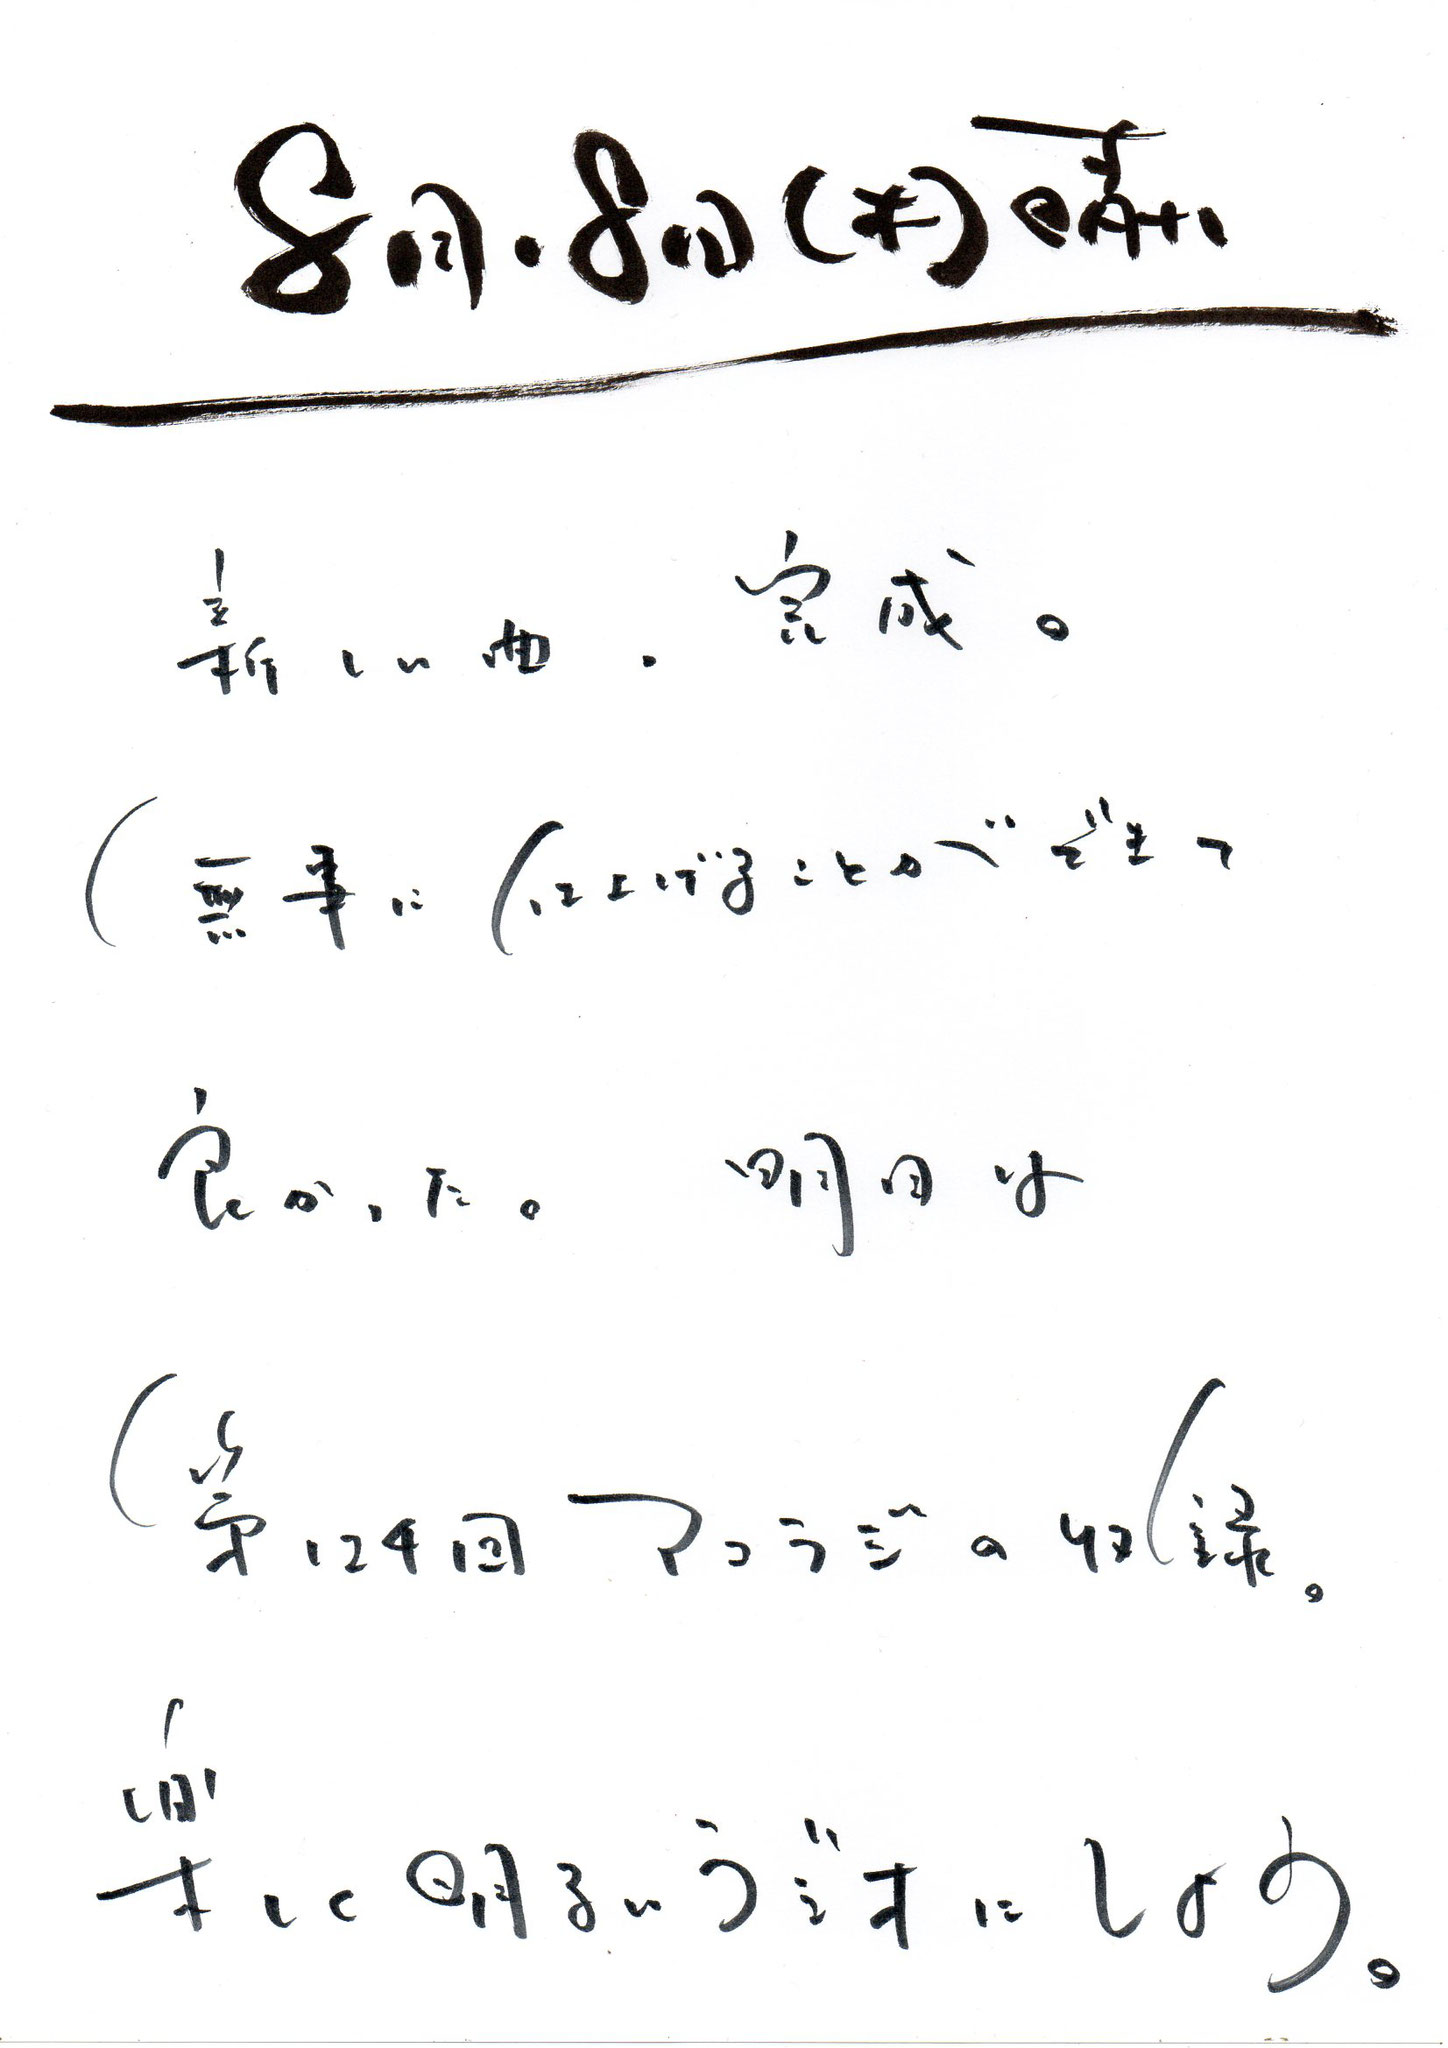 8月.8日(木)晴れ
新しい曲、完成。
無事に仕上げることができて
良かった。明日は
第124回マコラジの収録。
楽しく明るいラジオにしよう。